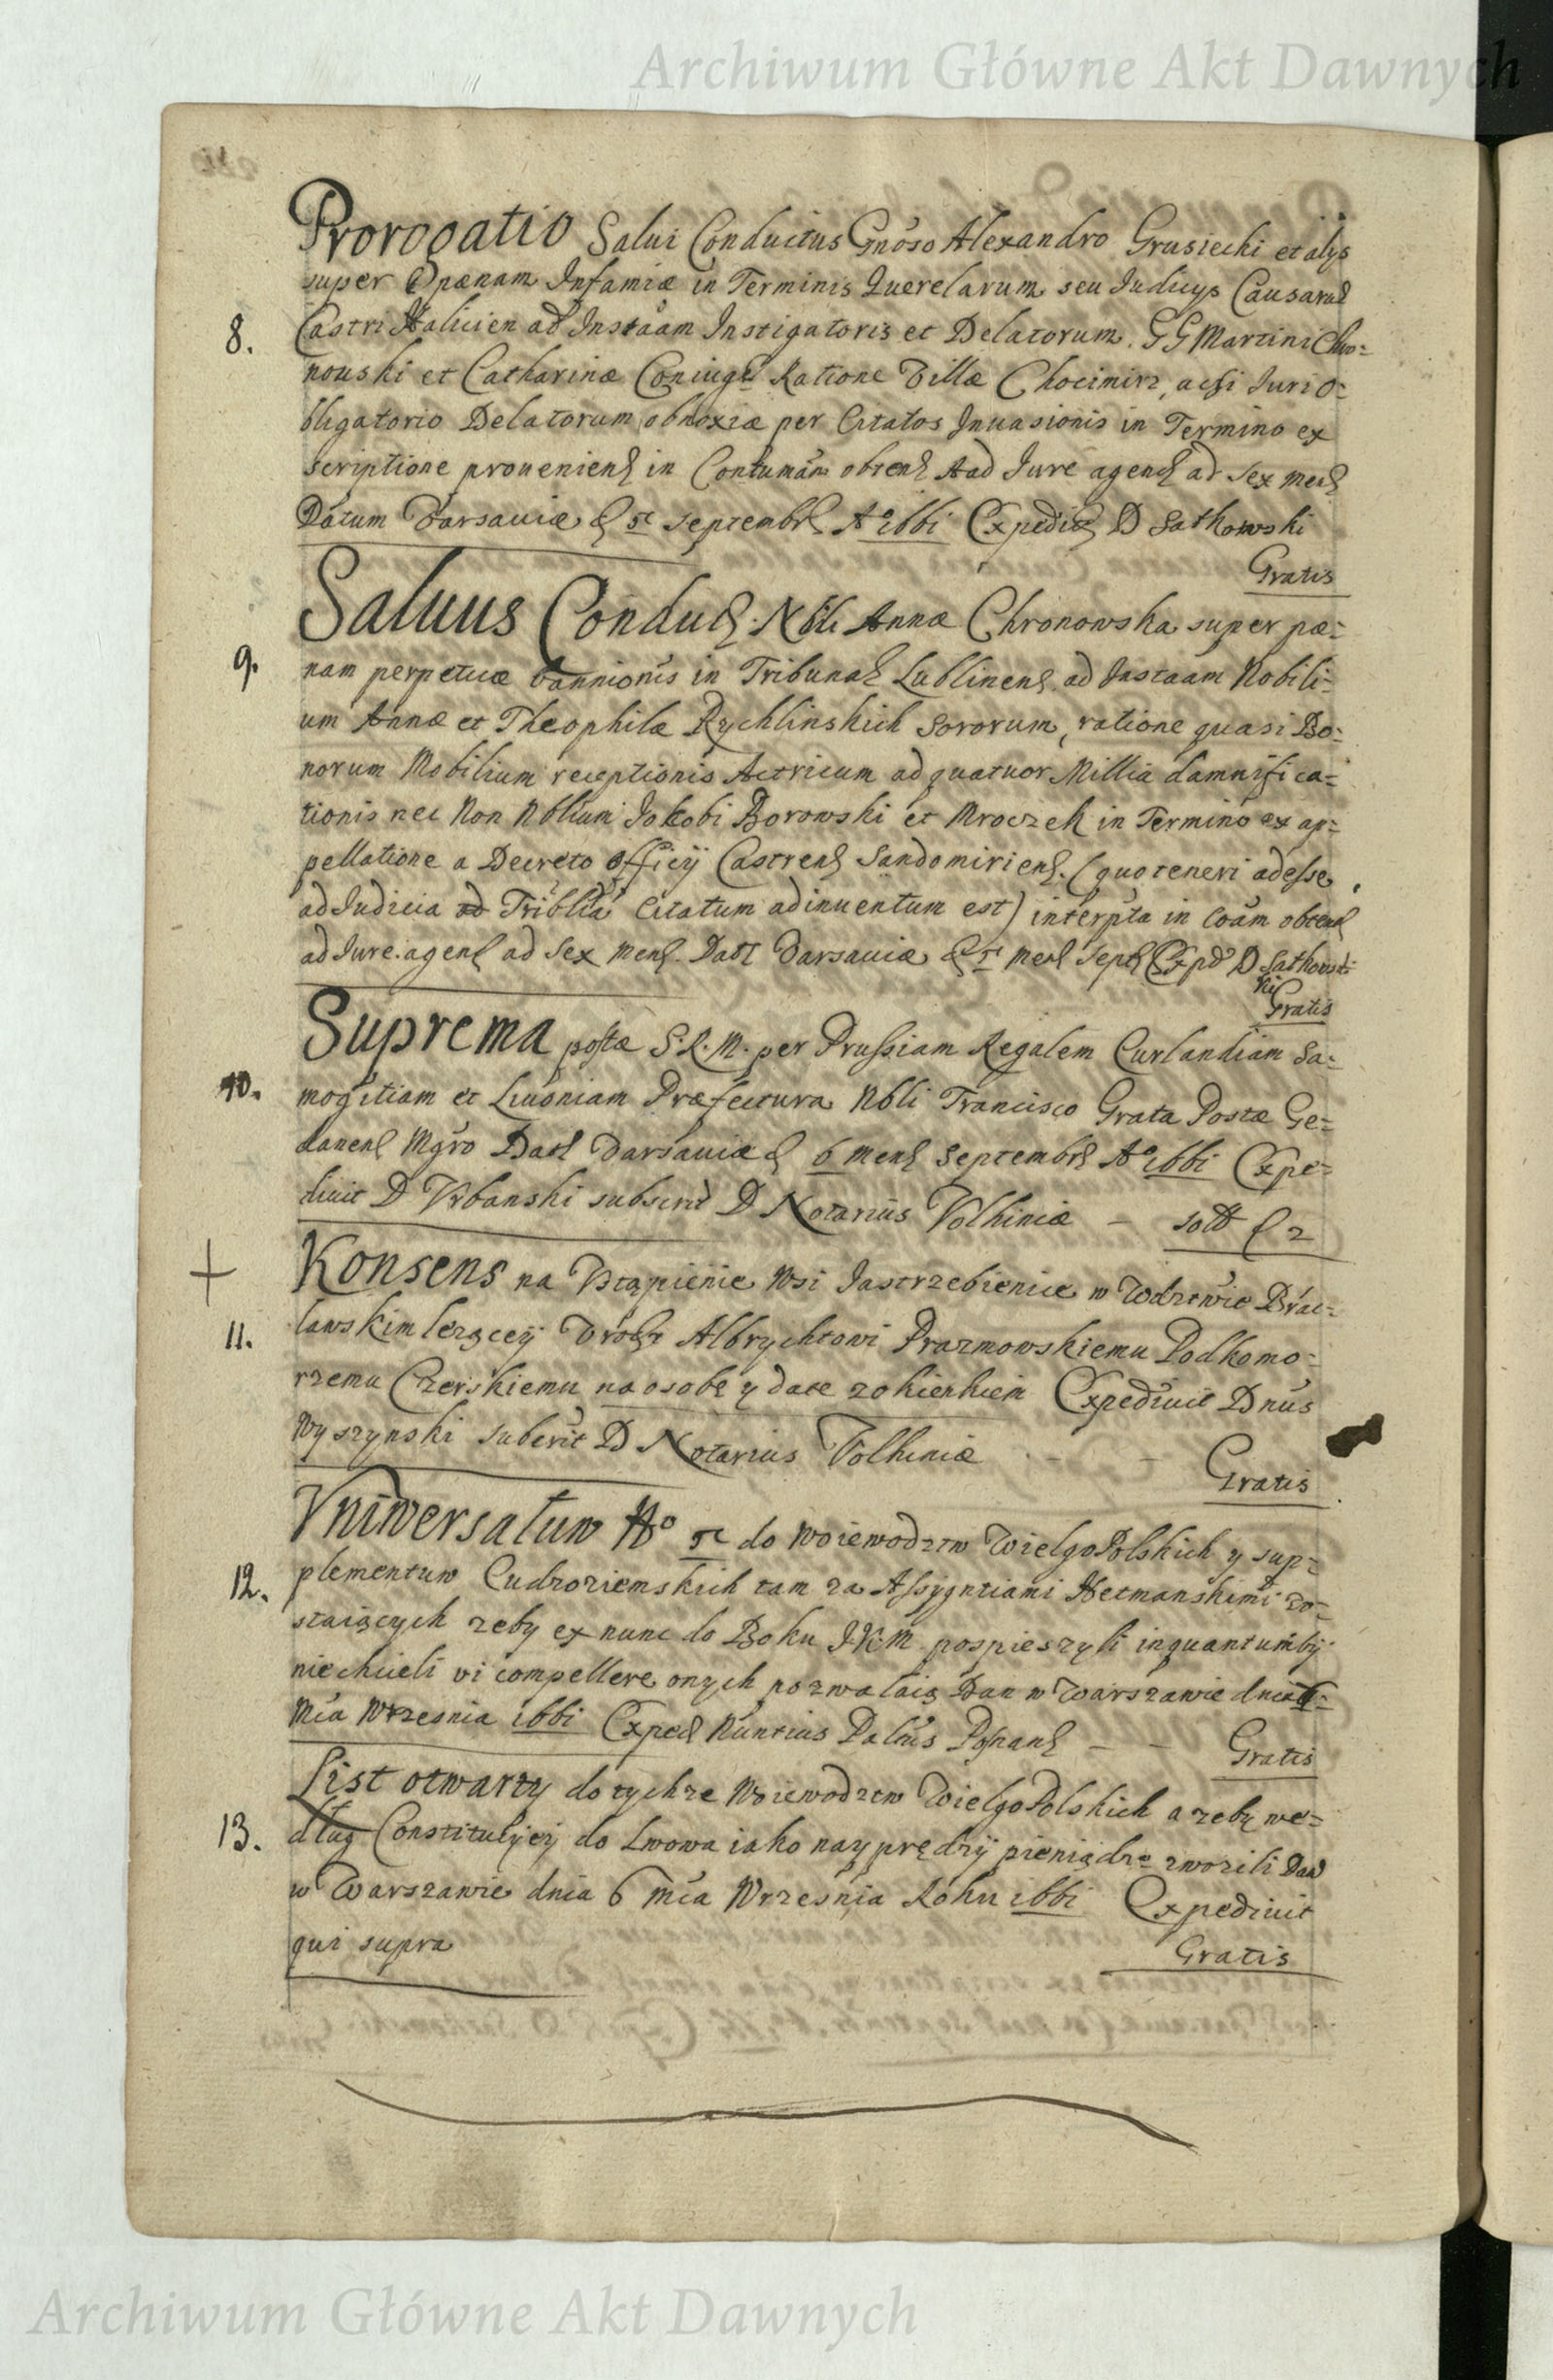 Archiwum Główne Akt Dawnych
Prorogatio Salui Conductus Gnoso Alexandro Grusiecki et alijs
super paenam Infamiæ in Terminis Querelarum seu Iudicys Causarum
8. Castri Halicien ad Instaam Instigatoris et Delatorum GG Martini Chro=
nouski et Catharinæ Coniugu Ratione Villæ Chocimirz, acsi Iuri o=
bligatorio Delatorum obnoxiæ per Citatos Inuasionis in Termino ex
scriptione prouenien in Contumam obten Aad Iure agen ad sex men
Datum Varsauiæ d 5 septembr A° 1661 Expedit D Sathowski
Gratis
Saluus Conduc Nbli Annæ Chronowska super pæ=
9. nam perpetuæ bannionis in Tribunal Lublinen ad Instaam Nobili=
um Annæ et Theophilæ Rychlinskich Sororum, ratione quasi Bo=
norum Mobilium receptionis Actricum ad quatuor Millia damnifica=
tionis nec Non Nblium Jakobi Borowski et Mroczek in Termino ex ap=
pellatione a Decreto officij Castren Sandomirien (quo teneri adesse
ad Iudicia ad Triblia Citatum adinuentum est) interpta in Coam obten
ad Iure agen ad Sex Men Dat Varsauiæ d 5 Men Sept Expd D Sathows
ki
Gratis
Suprema postæ S.R.M. per Prussiam Regalem Curlandiam Sa=
10. mogitiam et Liuoniam Præfectura Nbli Francisco Grata Postæ Ge=
danen Mgro Dat Varsauiæ d 6 Men Septembr A° 1661 Expe=
diuit D Vrbanski subscrit D Notarius Volhiniæ - solt f 2
+
Konsens na Vstąpienie Wsi Jastrzebienice w Wodztwie Brac=
11. lawskim lezącey Vroh Albrychtowi Prazmowskiemu Podkomo=
rzemu Czerskiemu na osobę y date zokienkiem Expediuit Dnus
Wyszynski suberit D Notarius Volhiniæ - -
Gratis
Vniwersałuw No 5 do Woiewodztw WielgoPolskich y sup=
12. plementuw Cudzoziemskich tam za Assygntiami Hetmanskimi zo=
staiących zeby ex nunc do Boku J.K.M pospieszyli inquantumby
niechcieli vi compellere onych pozwalaią Dan w Warszawie dnia 6
Mca Wrzesnia 1661 Exped Nuntius Paltus Posnan - -
Gratis
List otwarty do tychze Woiewodztw WielgoPolskich azeby we=
13. dług Constitucyey do Lwowa iako nayprędzy pieniądze zwozili Dan
w Warszawie dnia 6 Mca Wrzesnia Roku 1661 Expediuit
qui supra
Gratis
Archiwum Główne Akt Dawnych